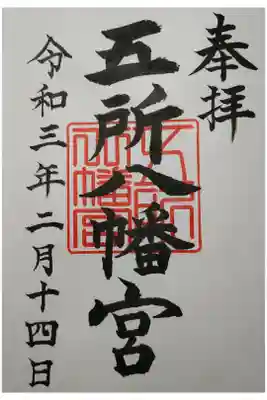 奉拝
五所八幡宮
令和三年二月十四日
五所
八幡宮